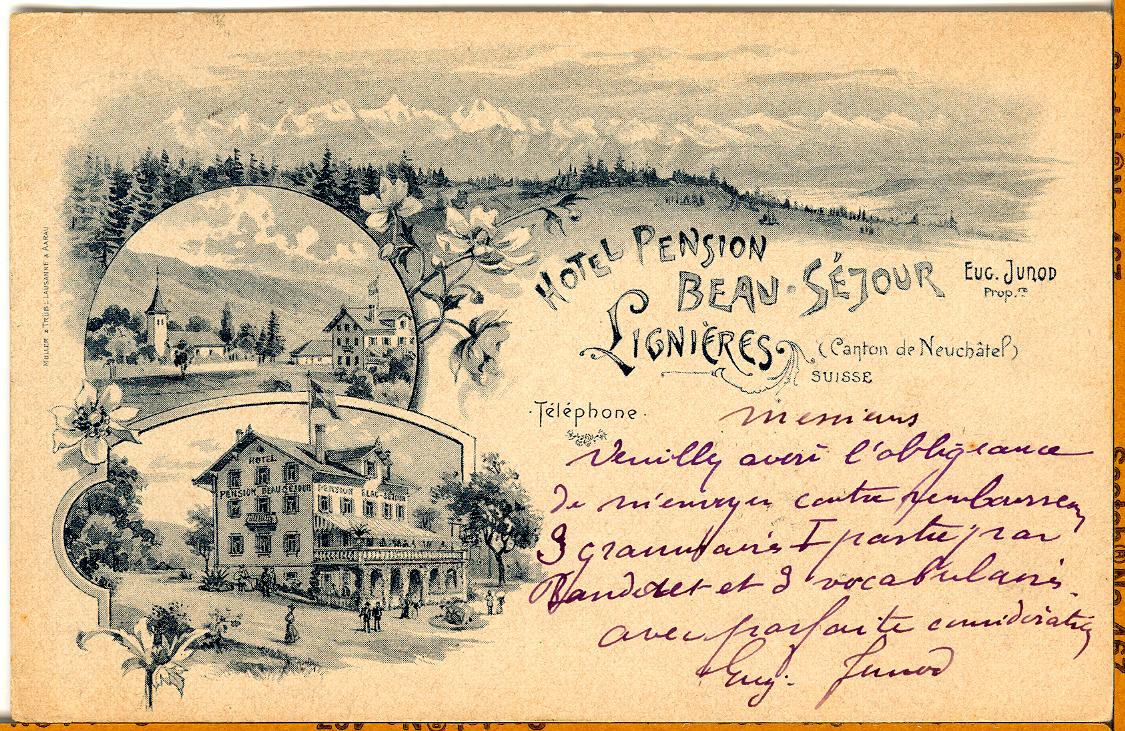 HOTEL PENSION
BEAU-SÉJOUR
EUG. JUNOD
Prop.re
LIGNIÈRES
(Canton de Neuchâtel)
SUISSE
·Téléphone·
MÜLLER & TRÜB, LAUSANNE & AARAU
HOTEL
PENSION BEAU-SEJOUR
PENSION BEAU-SEJOUR
Messieurs
Veuilly avoir l'obligeance
de m'envoyer contre remboursem
3 grammairs I partie par
et 3 vocabulairs
avec parfaite considération
Eug. Junod